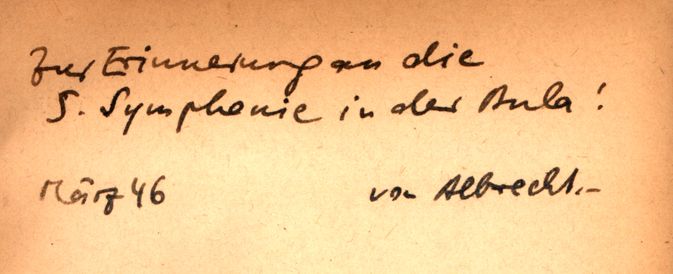 Zur Erinnerung an die
5. Symphonie in der Aula!
März 46 von Albrecht.-